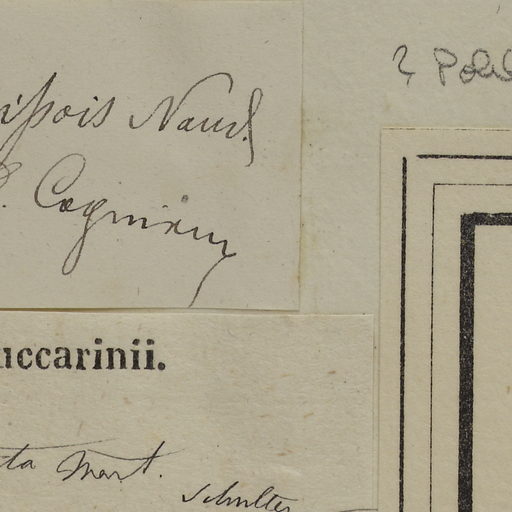 ? Pohl
Naud.
Cogniaux
uccarinii.
ta Mart.
Schultes